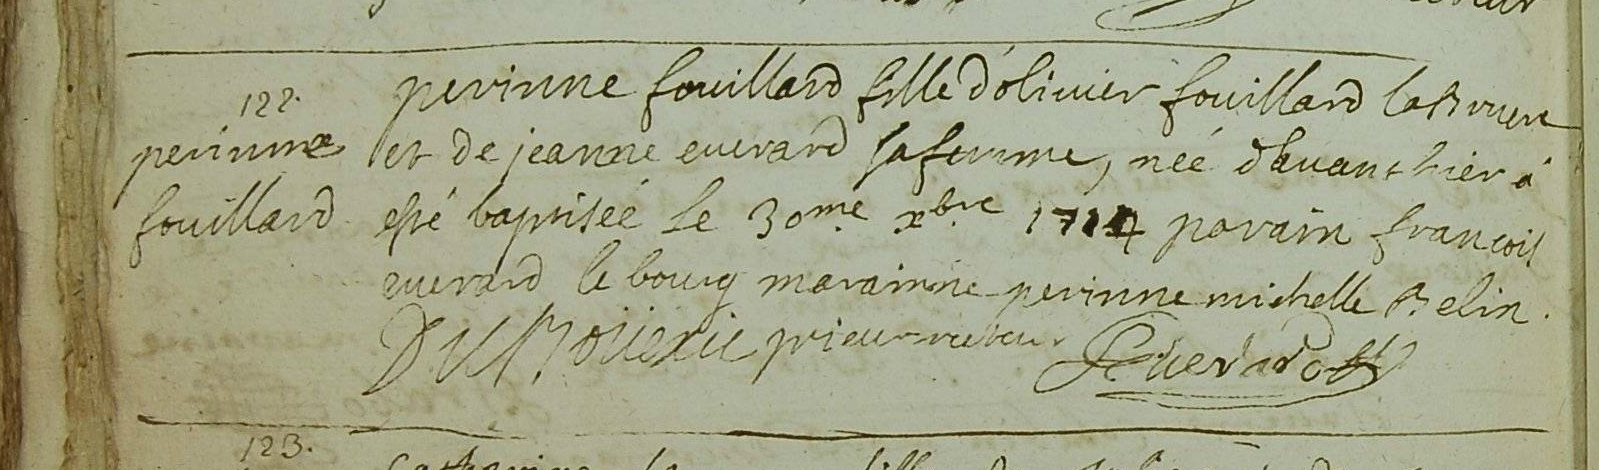 122.
perinne
fouillard
perinne fouillard fille d'olivier fouillard la Bruere
et de jeanne everard sa femme, neé d'avant hier à
esté baptiseé le 30me xbre 1714 parain francois
everard le bourg marainne perinne michelle Belin.
prieur recteur
Everard
123.